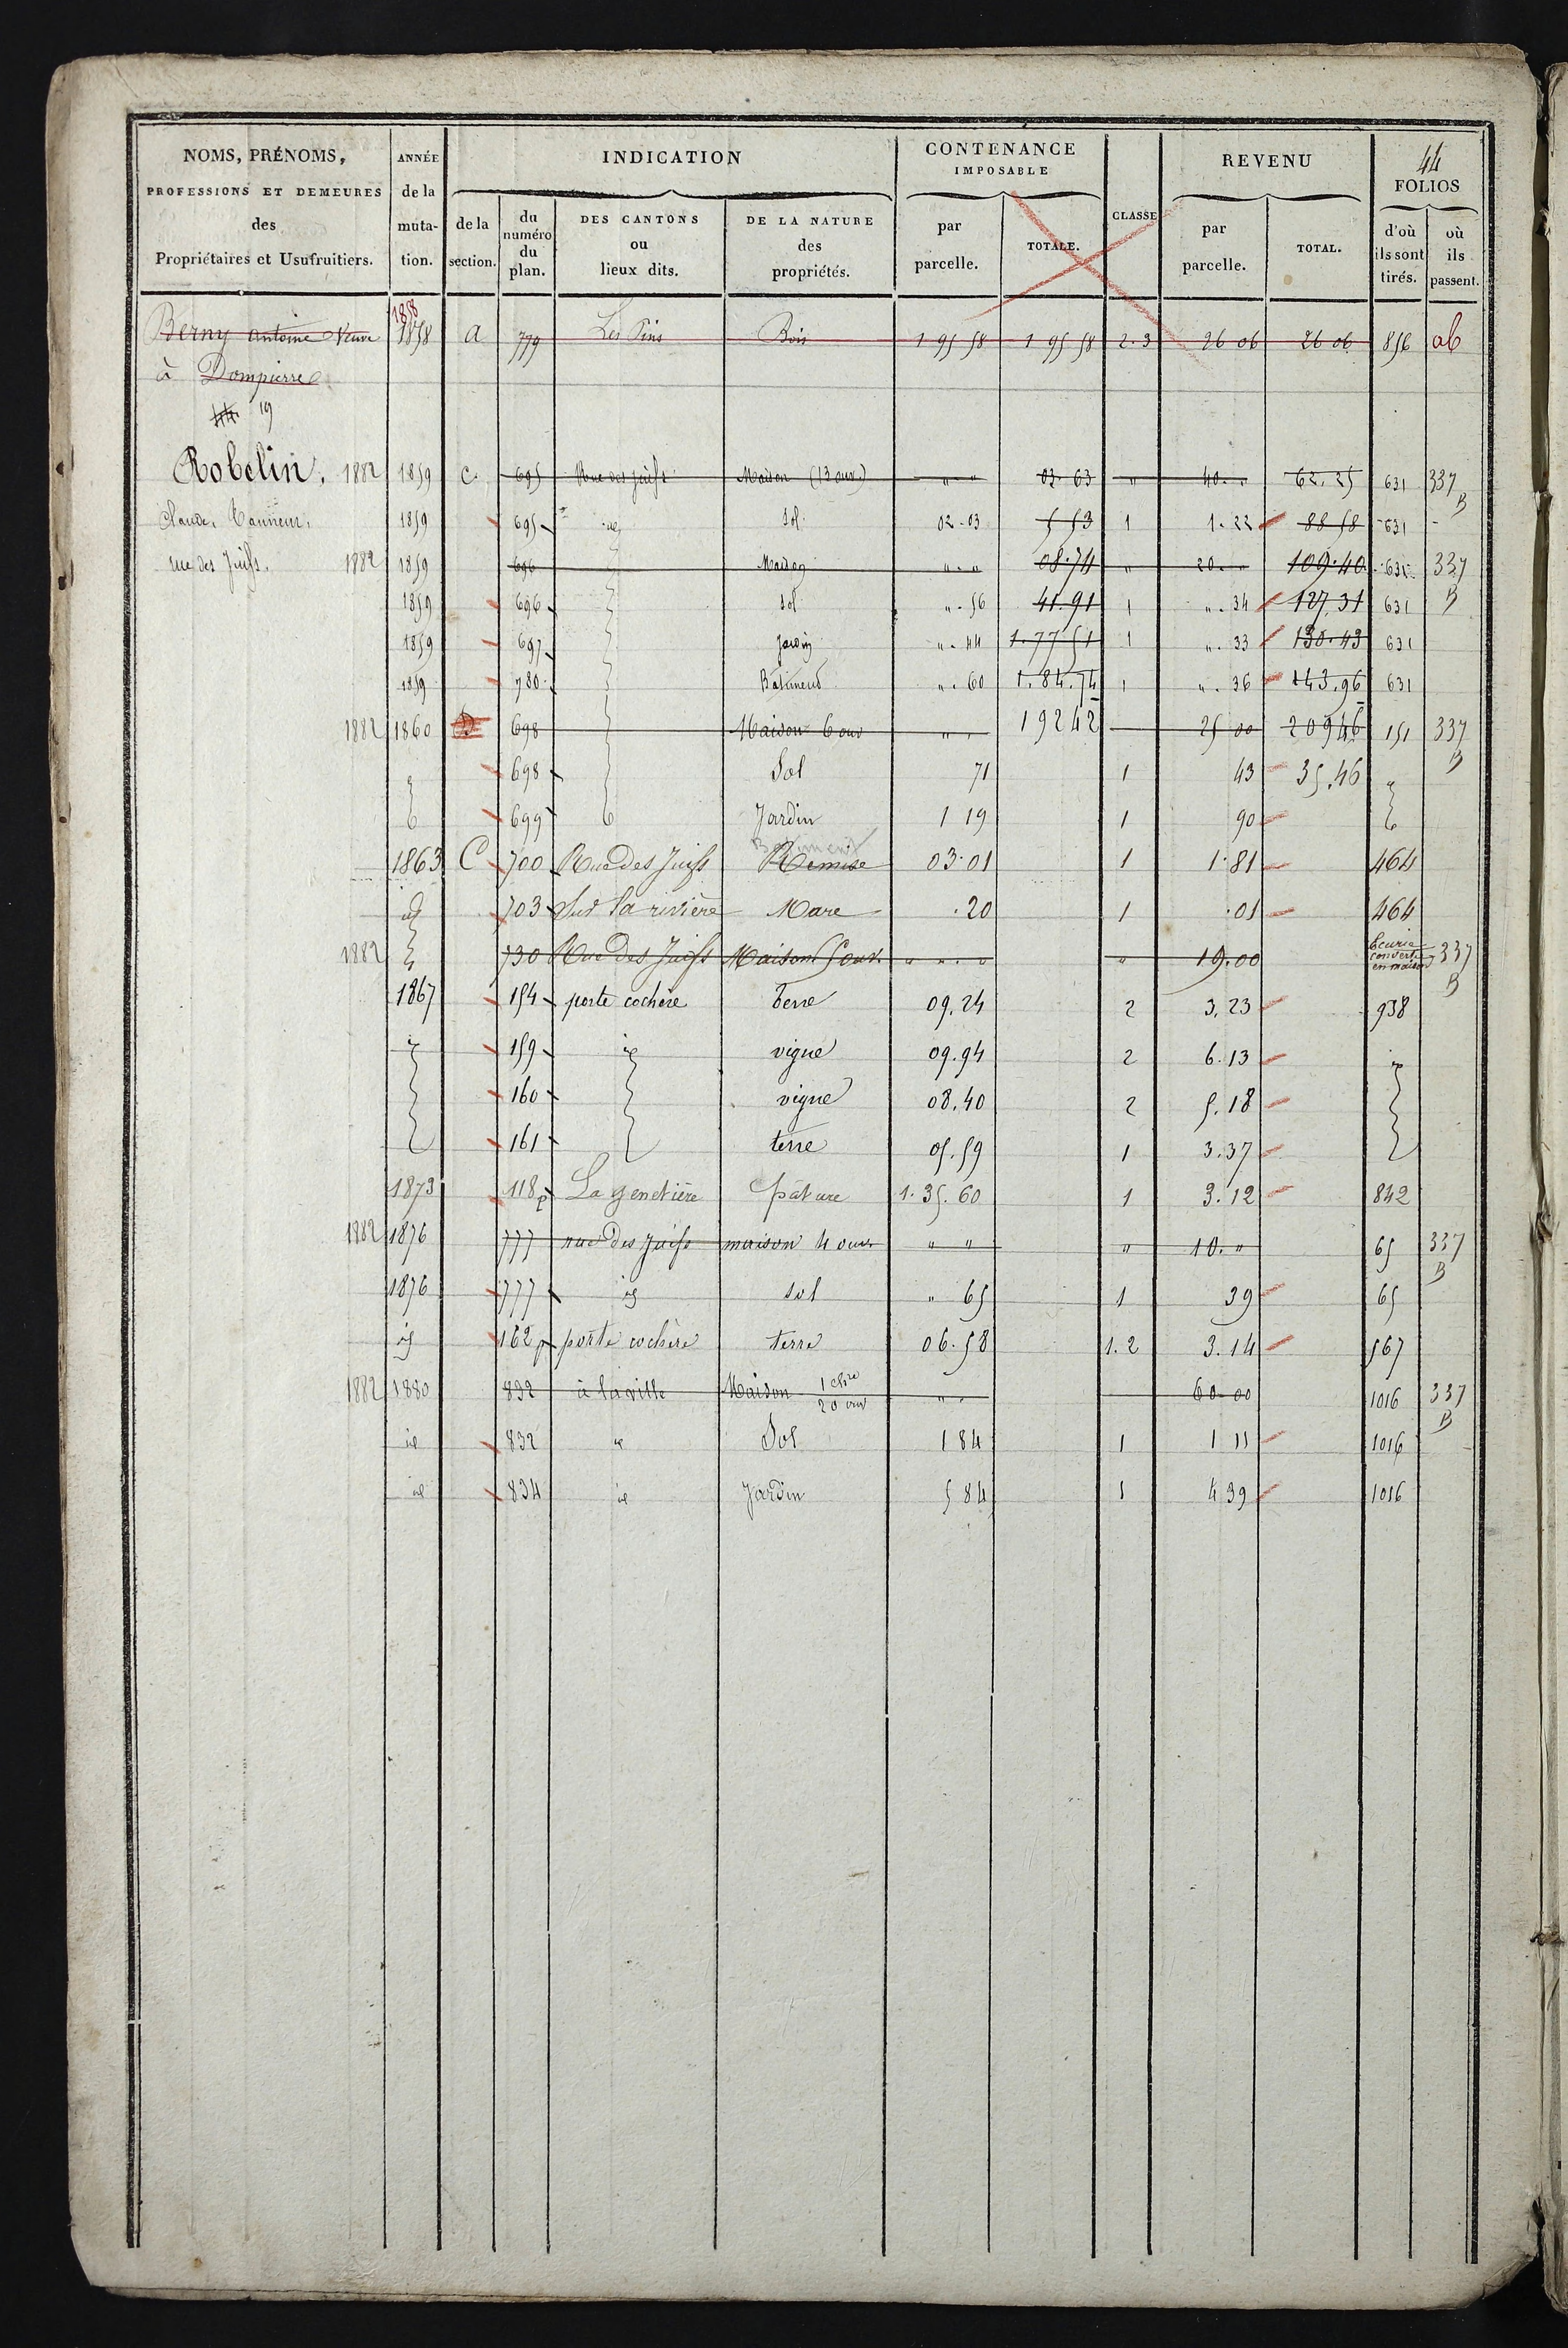 44
NOMS, PRÉNOMS, PROFESSIONS ET DEMEURES des Propriétaires et Usufruitiers. | ANNÉE de la muta- tion. | INDICATION | CONTENANCE IMPOSABLE | CLASSE | REVENU | FOLIOS
de la section. | du numéro du plan. | DES CANTONS ou lieux dits. | DE LA NATURE des propriétés. | par parcelle. | TOTALE. | par parcelle. | TOTAL. | d'où ils sont tirés. | où ils passent.
1858
Berny antoine Veuve 1858 A 779 Les Pins Bois 1 95 58 1 95 58 2.3 26 06 26 06 856 ab
à Dompierre
44 19
Robelin. 1882 1859 C. 695 Rue des juifs Maison (13 ouv.) " " 03.63 " 40 " 62.25 631 337 B
Claude, Tanneur, 1859 695 id Sol 02.03 5 53 1 1.22 88 58 631
rue des Juifs. 1882 1859 696 Maison " " 08.74 " 20. " 109.40 631 337 B
1859 696 sol ". 56 41.91 1 ". 34 127,31 631
1859 697 Jardin ". 44 1.77 51 1 ". 33 130.43 631
1859 780 Bâtiment ". 60 1.84.74 1 ". 36 143.96 631
1882 1860 D 698 Maison 6 ouv " " 19242 25 00 20946 151 337 B
698 Sol 71 1 43 35.46 "
699 Jardin 1 19 1 90
Batiment
1863 C 700 Rue des Juifs Remise 03.01 1 1.81 464
id 703 Sur la rivière Mare .20 1 .01 464
1882 730 Rue des Juifs Maison 5 ouv. " " " " 19.00 Ecurie convertie en maison 337 B
1867 154 porte cochère terre 09.24 2 3,23 938
id 159 id vigne 09.94 2 6.13 id
160 vigne 08.40 2 5.18
161 terre 05.59 1 3.37
1873 118p La genetière pâture 1.35.60 1 3.12 842
1882 1876 777 rue des Juifs maison 4 ouv " " " 10. " 65 337 B
1876 777 id sol " 65 1 39 65
id 162p porte cochère terre 06.58 1.2 3.14 567
1882 1880 832 à la ville Maison 1 chre 20 ouv " . 60 00 1016 337 B
id 832 id Sol 1 84 1 1 11 1016
id 834 id Jardin 5 84 1 4 39 1016